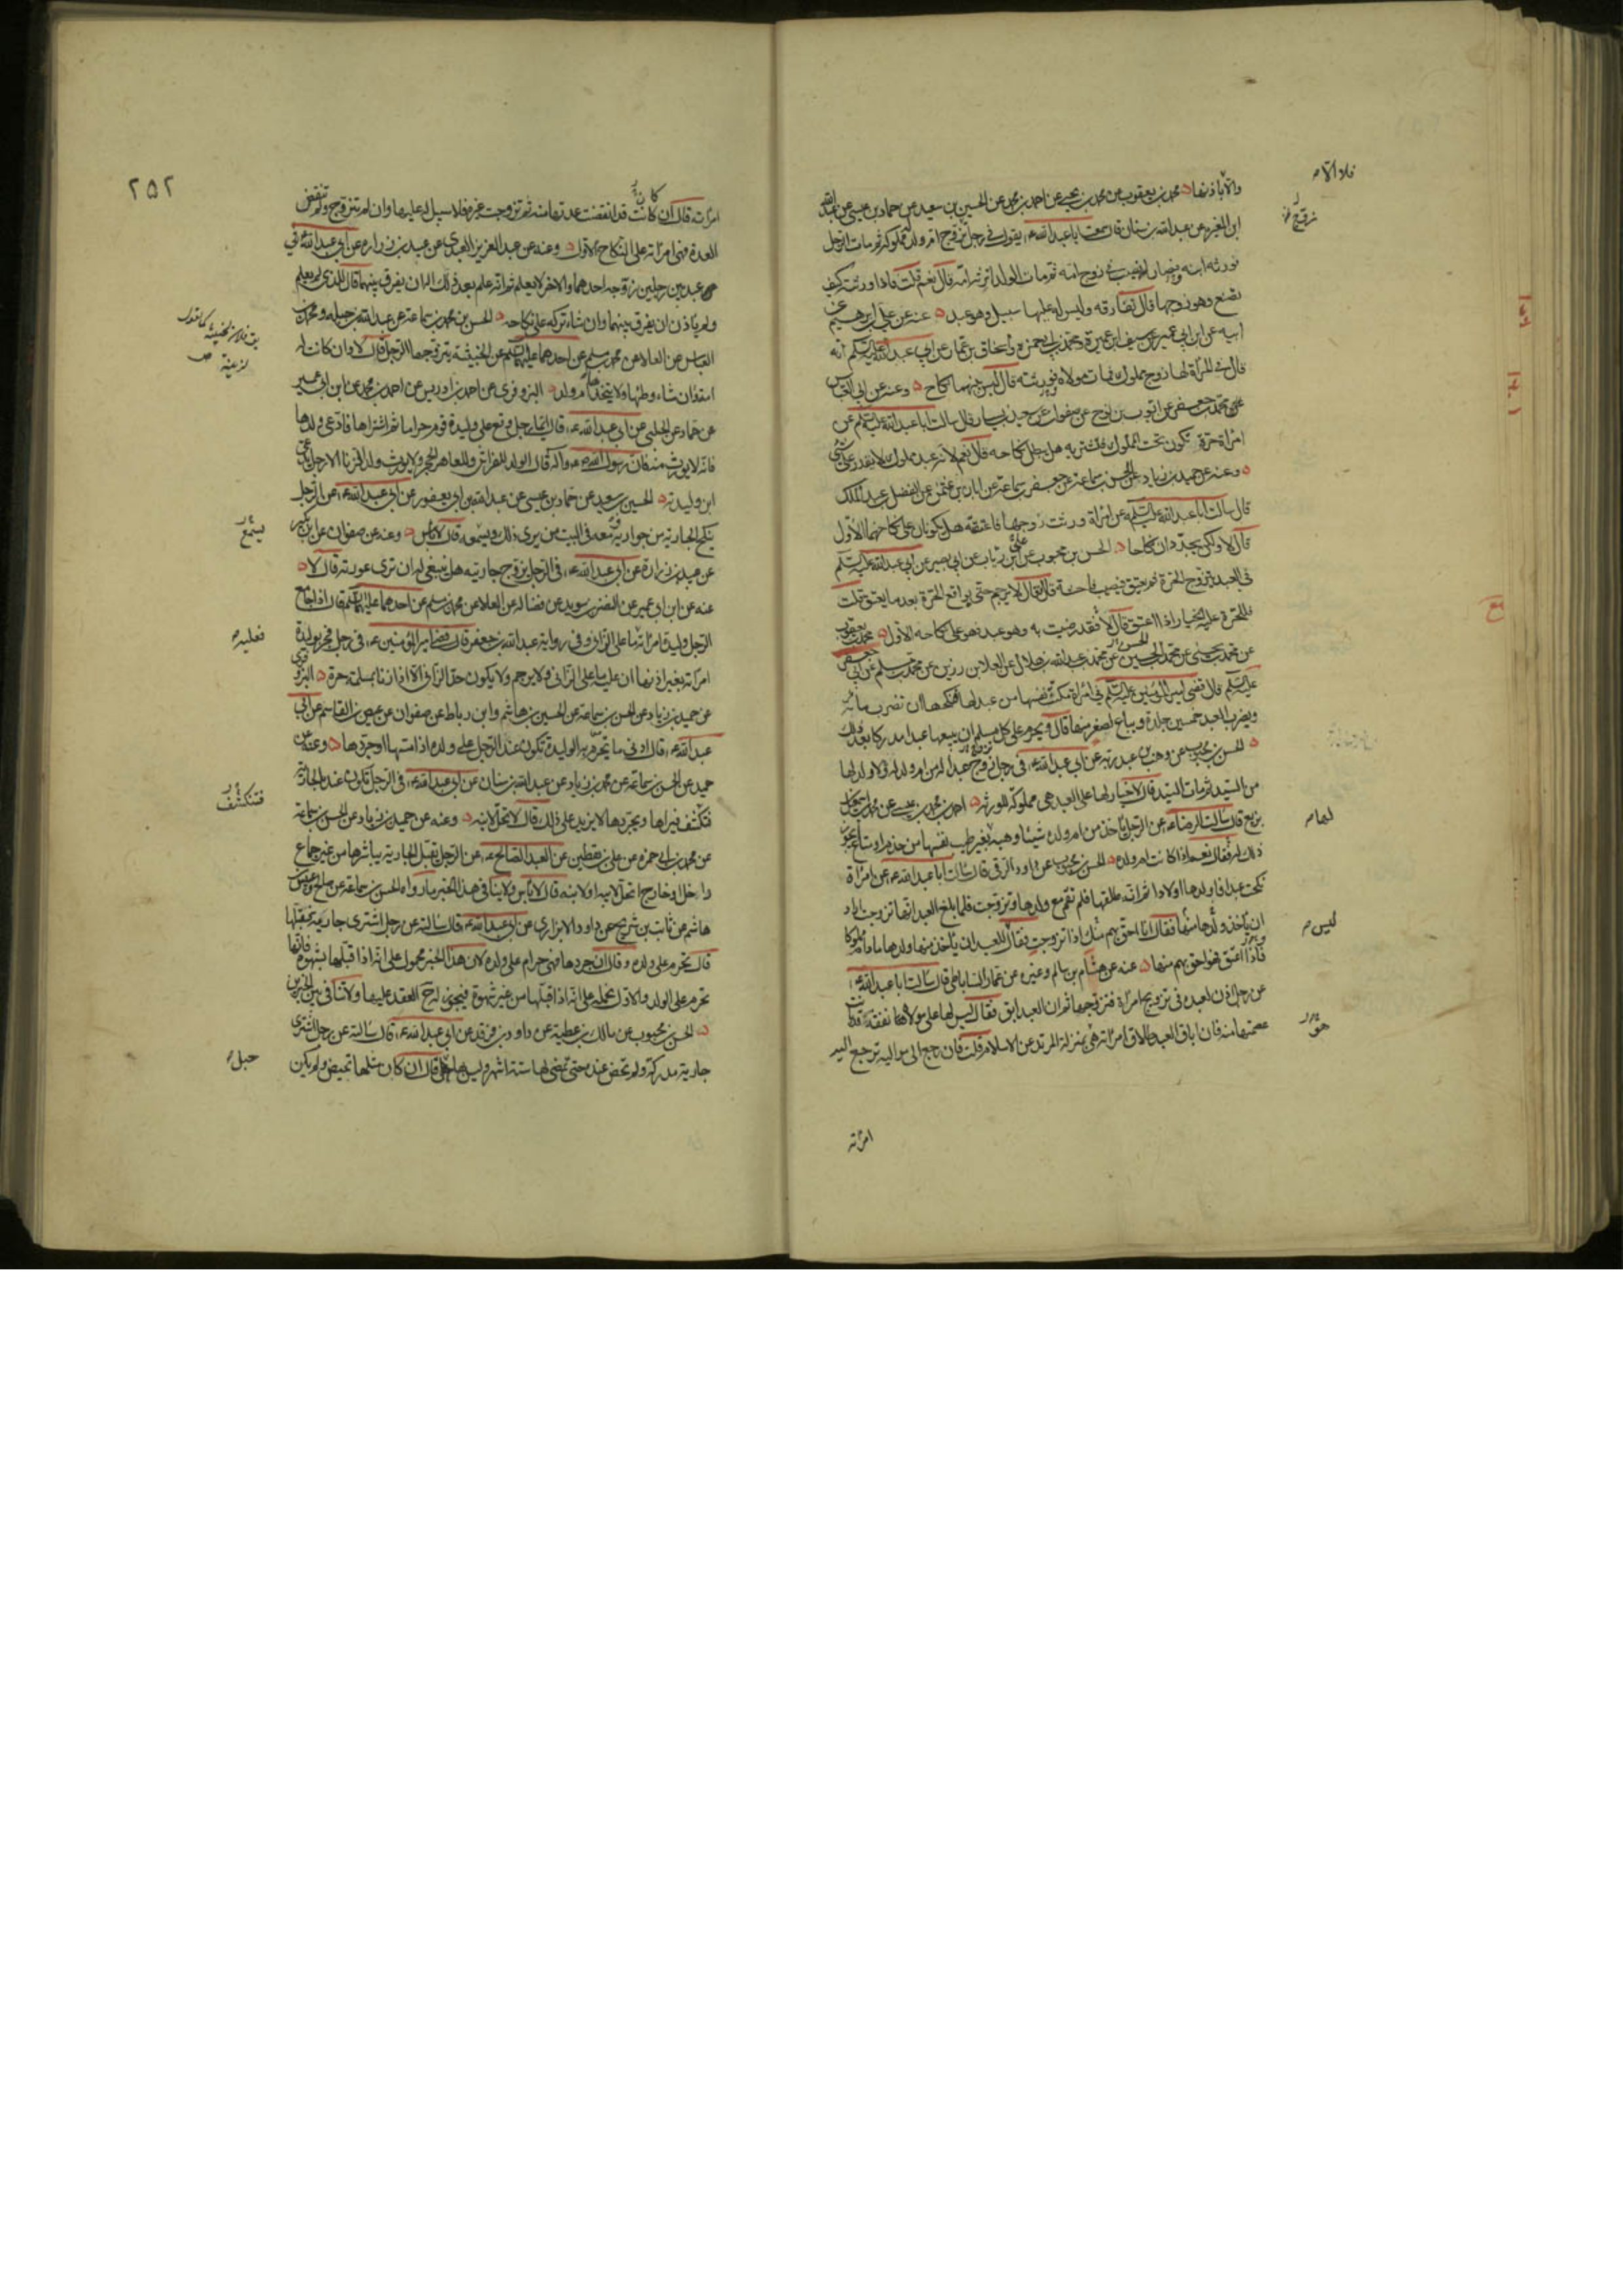 والا باذنها محمد بن يعقوب عن محمد بن يحيى عن احمد بن محمد عن الحسين بن سعيد عن حماد بن عيسى عن عبدالله
ابن المغيرة عن عبدالله بن سنان قال سمعت ابا عبدالله ع يقول في رجل زوج ام ولد له مملوكه ثم مات الرجل
فورثه ابنه فصار له نصيب في زوج امه ثم مات الولد اترثه امه قال نعم قلت فاذا ورثته كيف
تصنع وهو زوجها قال تفارقه وليس له عليها سبيل وهو عبد عنه عن علي بن ابرهيم عن
ابيه عن ابن ابي عمير عن سيف بن عميرة ومحمد بن ابي حمزة واسحاق بن عمار عن ابي عبدالله عليه السلم انه
قال في امرأة لها زوج مملوك فمات مولاه فورثته قال ليس بينهما نكاح وعنه عن ابي العباس
محمد بن جعفر عن ايوب بن نوح عن صفوان عن سعيد بن يسار قال سالت ابا عبدالله عليه السلم عن
امرأة حرة تكون تحت المملوك فتشتريه هل يبطل نكاحه قال نعم لانه عبد مملوك لا يقدر على شئ
وعنه عن حميد بن زياد عن الحسن بن سماعة عن جعفر بن سماعة عن ابان بن عثمن عن الفضل بن عبد الملك
قال سالت ابا عبدالله عليه السلم عن امرأة ورثت زوجها فاعتقته هل يكونان على نكاحهما الاول
قال لا ولكن يجددان نكاحا الحسن بن محبوب عن علي بن رئاب عن ابي بصير عن ابي عبدالله عليه السلم
في العبد يتزوج الحرة ثم يعتق فيصيب فاحشة قال فقال لا يرجم حتى يواقع الحرة بعد ما يعتق قلت
فللحرة عليه الخيار اذا اعتق قال لا قد رضيت به وهو عبد فهو على نكاحه الاول محمد بن يعقوب
عن محمد بن يحيى عن محمد بن الحسين عن محمد بن عبدالله بن هلال عن العلا بن رزين عن محمد بن مسلم عن ابي جعفر
عليه السلم قال قضى امير المؤمنين عليه السلم في امرأة مكنت نفسها من عبد لها فنكحها ان تضرب مائة
ويضرب العبد خمسين جلدة ويباع بصغر منها قال ويحرم على كل مسلم ان يبيعها عبدا مدركا بعد ذلك
الحسن بن محبوب عن وهب بن عبد ربه عن ابي عبدالله ع في رجل زوج عبدا له من ام ولد له ولا ولد لها
من السيد ثم مات السيد قال لا خيار لها على العبد هي مملوكة للورثة احمد بن محمد بن عيسى عن محمد بن اسمعيل
بزيع قال سالت الرضا ع عن الرجل ياخذ من ام ولده شيئا وهبه بغير طيب نفسها من خدم او متاع ايجوز
ذلك له فقال نعم اذا كانت ام ولده الحسن بن محبوب عن داود الرقي قال سالت ابا عبدالله ع عن امرأة
نكحت عبدا فاولدها اولادا ثم انه طلقها فلم تقم مع ولدها وتزوجت فلما بلغ العبد انها تزوجت اراد
ان ياخذ ولدها منها فقال انا احق بهم منك اذا تزوجت فقال ليس للعبد ان ياخذ منها ولدها ما دام مملوكا
فاذا اعتق فهو احق بهم منها عنه عن هشام بن سالم وغيره عن عمار الساباطي قال سالت ابا عبدالله ع
عن رجل اذن لعبده في تزويج امرأة فتزوجها ثم ان العبد ابق فقال ليس لها على مولاها نفقة وقد بانت
عصمتها منه فان اباق العبد طلاق امرأته هو بمنزلة المرتد عن الاسلام قلت فان رجع الى مواليه ترجع اليه
امرأته
ليس
٢٥٢
امرأته قال ان كانت قد انقضت عدتها منه ثم تزوجت غيره فلا سبيل له عليها وان لم تتزوج ولم تنقض
العدة فهي امرأته على النكاح الاول وعنه عن عبد العزيز العبدي عن عبيد بن زرارة عن ابي عبدالله ع في
عبد بين رجلين زوجه احدهما والاخر لا يعلم ثم انه علم بعد ذلك اله ان يفرق بينهما قال للذي لم يعلم
ولم ياذن ان يفرق بينهما وان شاء تركه على نكاحه الحسن بن محمد بن سماعة عن عبدالله بن جبلة ومحمد بن
العباس عن العلا عن محمد بن مسلم عن احدهما عليهما السلم عن الخبيثة يتزوجها الرجل قال لا وان كانت له
امة فان شاء وطئها ولا يتخذها ام ولد البزوفري عن احمد بن ادريس عن احمد بن محمد عن ابن ابي عمير
عن حماد عن الحلبي عن ابي عبدالله ع قال ايما رجل وقع على وليدة قوم حراما ثم اشتراها فادعى ولدها
فانه لا يورث منه فان رسول الله ص واله قال الولد للفراش وللعاهر الحجر ولا يورث ولد الزنا الا رجل يدعي
ابن وليدته الحسين بن سعيد عن حماد بن عيسى عن عبدالله بن ابي يعفور عن ابي عبدالله ع عن الرجل
ينكح الجارية من جواريه ومعه في البيت من يرى ذلك ويسمعه قال لا باس وعنه عن صفوان عن ابن بكير
عن عبيد بن زرارة عن ابي عبدالله ع في الرجل يزوج جاريته هل ينبغي له ان ترى عورته قال لا
عنه عن ابن ابي عمير عن النضر بن سويد عن فضاله عن العلا عن محمد بن مسلم عن احدهما عليهما السلم قال اذا جامع
الرجل وليدة امرأته ما على الزاني وفي رواية عبدالله بن جعفر قال قضى امير المؤمنين ع في رجل فجر بوليدة
امرأته بغير اذنها ان عليه ما على الزاني ولا يرجم ولا يكون حد الزاني الا اذا زنا بمسلمة حرة البزوفري
عن حميد بن زياد عن الحسن بن سماعة عن الحسين بن هاشم وابن رباط عن صفوان عن عيص بن القاسم عن ابي
عبدالله ع قال ادنى ما تحرم به الوليدة تكون عند الرجل على ولده اذا مسها او جردها وعنه عن
حميد عن الحسن بن سماعة عن محمد بن زياد عن عبدالله بن سنان عن ابي عبدالله ع في الرجل تكون عنده الجارية
فتكشف فيراها ويجردها لا يزيد على ذلك قال لا تحل لابنه وعنه عن حميد بن زياد عن الحسن بن سماعة
عن محمد بن ابي حمزة عن علي بن يقطين عن العبد الصالح ع عن الرجل يقبل الجارية يباشرها من غير جماع
داخل او خارج اتحل لابيه او لابنه قال لا باس ولا ينافي هذا الخبر ما رواه الحسن بن سماعة عن صالح وعبيس بن
هاشم عن ثابت بن شريح عن داود الابزاري عن ابي عبدالله ع قال سالته عن رجل اشترى جارية فقبلها
قال تحرم على ولده وقال ان جردها فهي حرام على ولده لان هذا الخبر محمول على انه اذا قبلها بشهوة فانها
تحرم على الولد والاول نحمله على انه اذا قبلها من غير شهوة فيجوز له العقد عليها ولا تنافي بين الخبرين
الحسن بن محبوب عن مالك بن عطية عن داود بن فرقد عن ابي عبدالله ع قال سالته عن رجل اشترى
جارية مدركة ولم تحض عنده حتى مضى لها ستة اشهر وليس بها حبل قال ان كان مثلها تحيض ولم يكن
يسمع
فعليه
فتنكشف
حبل